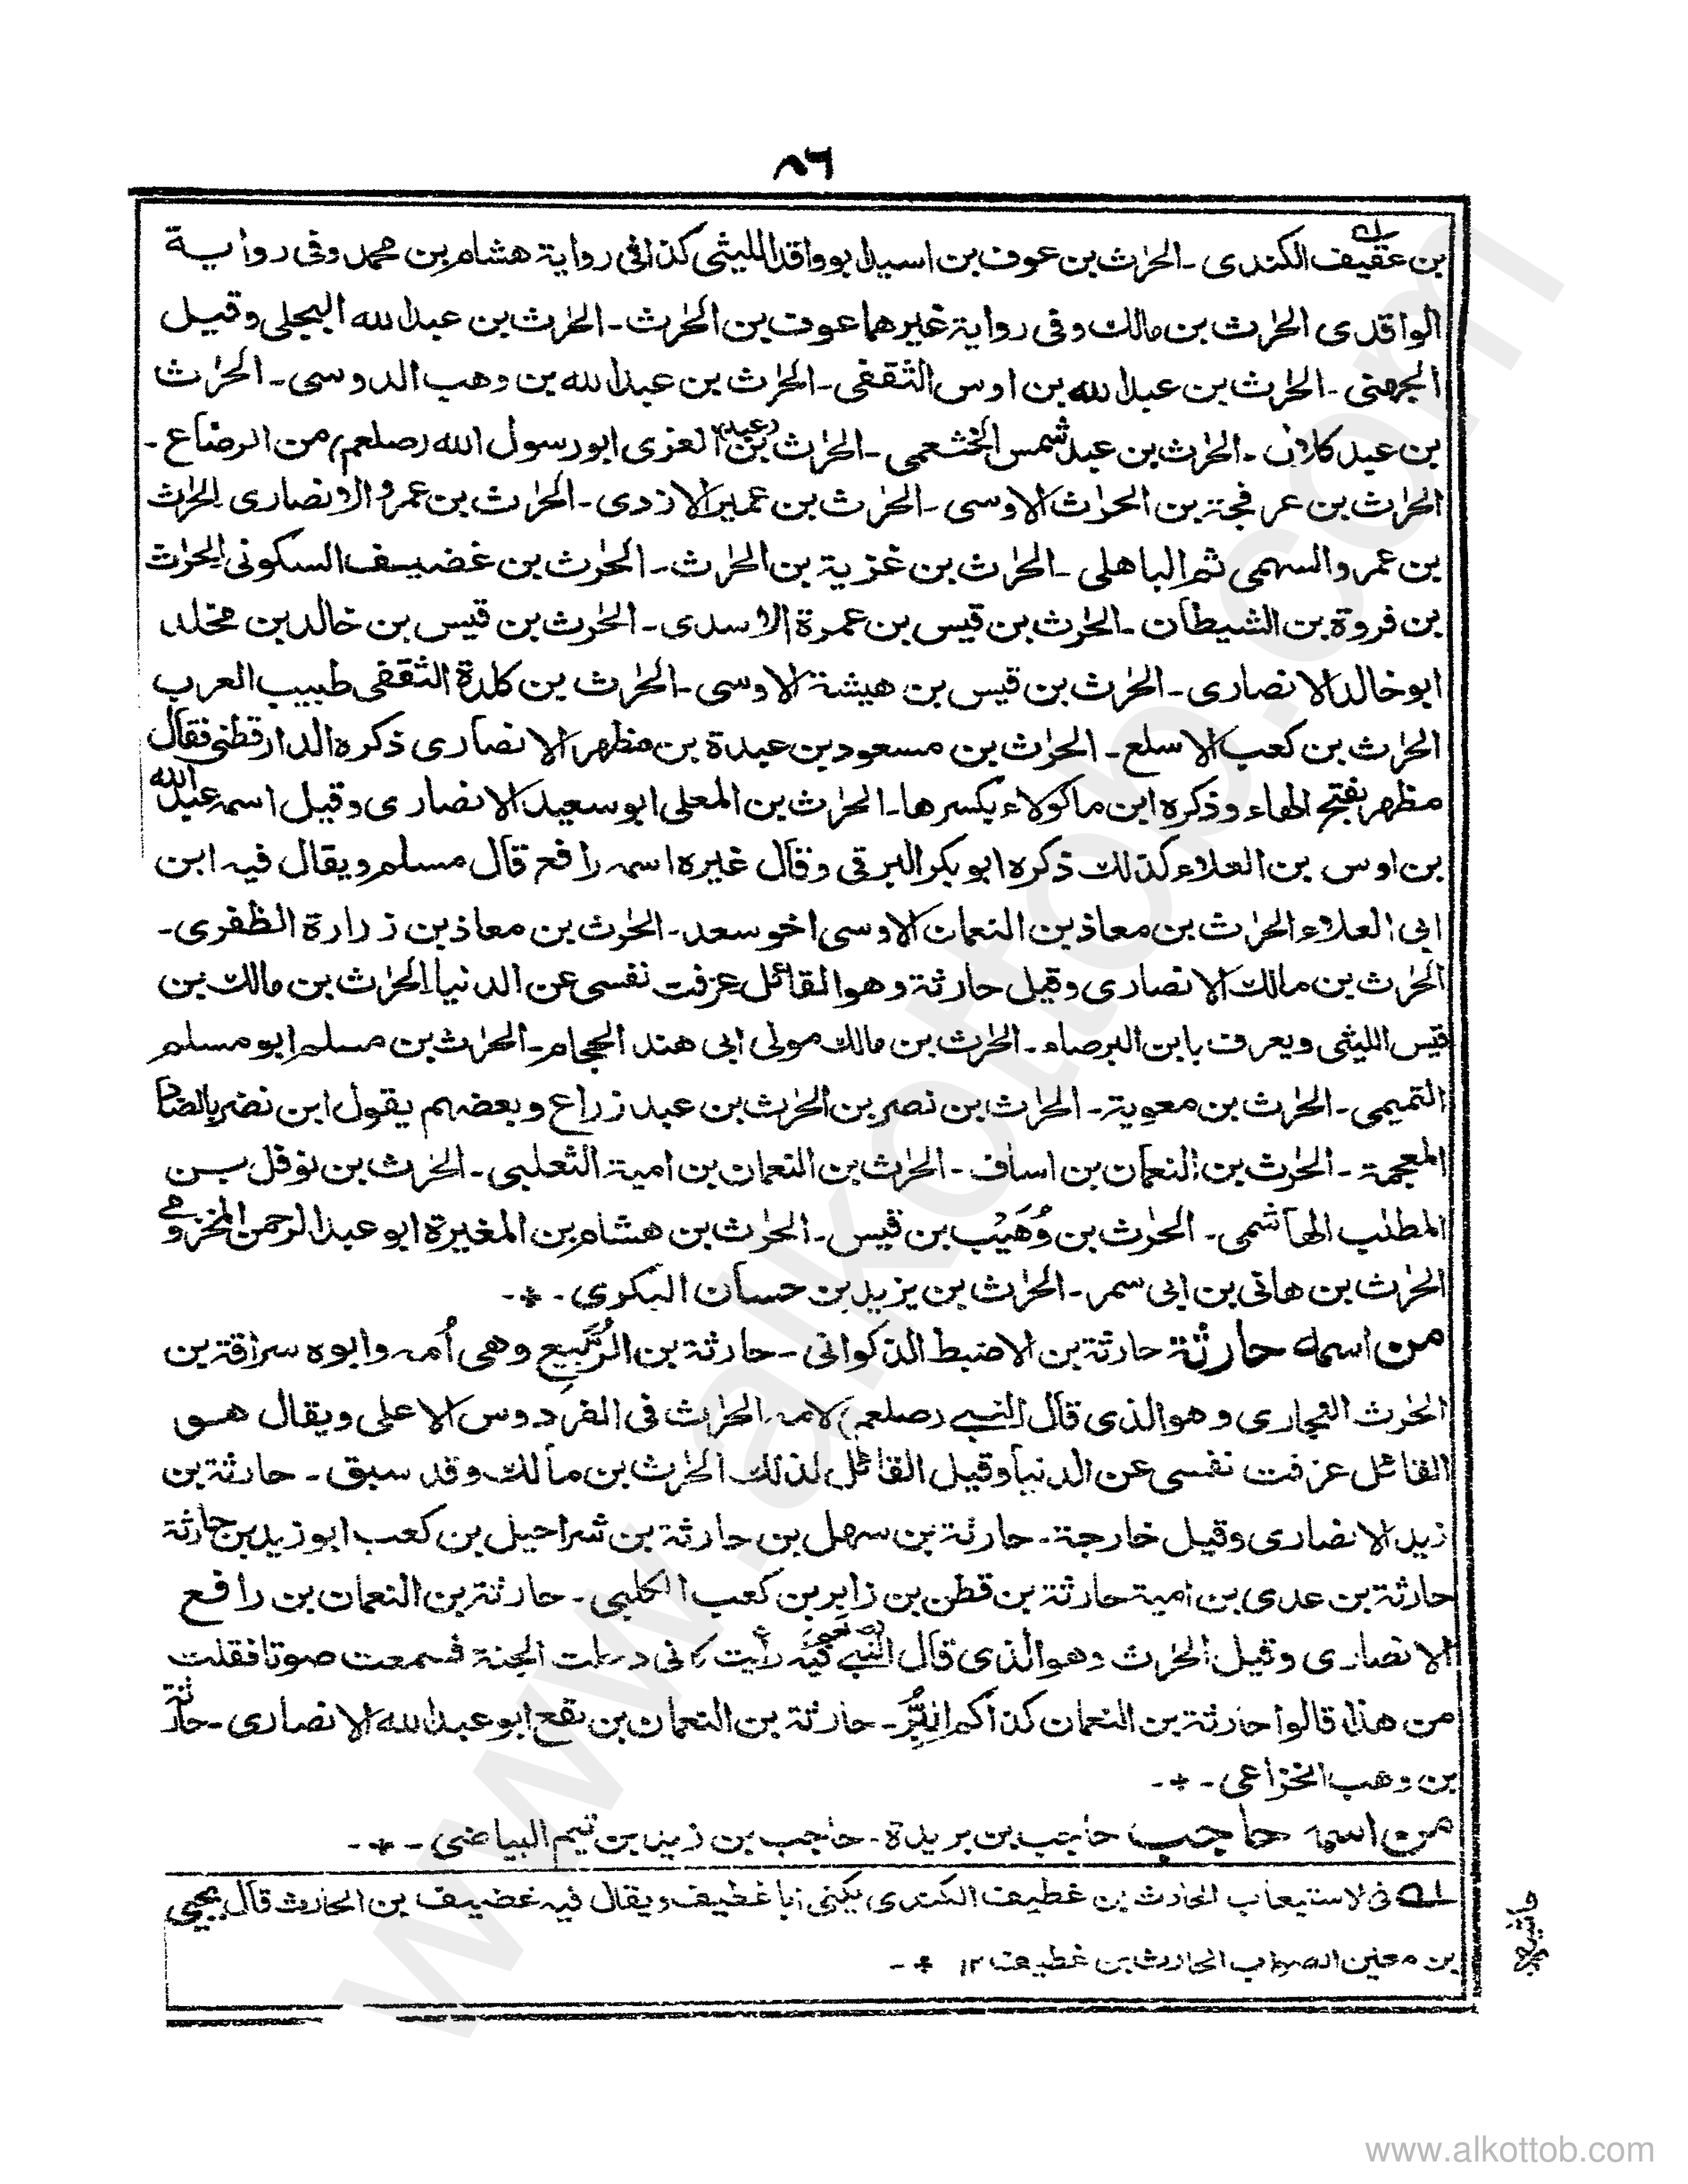 ٨٦
بن عقيف الكندى ـ الحٰرث بن عوف بن اسيد ابو واقد الليثى كذا فى رواية هشام بن محمد وفى رواية
الواقدى الحٰرث بن مالك وفى رواية غيرهما عوف بن الحٰرث ـ الحٰرث بن عبد الله البجلى وقيل
الجهنى ـ الحٰرث بن عبد الله بن اوس الثقفى ـ الحٰرث بن عبد الله بن وهب الدوسى ـ الحٰرث
بن عبد كلان ـ الحٰرث بن عبد شمس الخثعمى ـ الحٰرث بن (عبد) العزى ابو رسول الله (صلعم) من الرضاع ـ
الحٰرث بن عرفجة بن الحٰرث الاوسى ـ الحٰرث بن عمير الازدى ـ الحٰرث بن عمرو الانصارى الحٰرث
بن عمرو السهمى ثم الباهلى ـ الحٰرث بن غزية بن الحٰرث ـ الحٰرث بن غضيف السكونى الحٰرث
بن فروة بن الشيطان ـ الحٰرث بن قيس بن عمرة الاسدى ـ الحٰرث بن قيس بن خالد بن مخلد
ابو خالد الانصارى ـ الحٰرث بن قيس بن هيشة الاوسى ـ الحٰرث بن كلدة الثقفى طبيب العرب
الحٰرث بن كعب الاسلع ـ الحٰرث بن مسعود بن عبدة بن مظهر الانصارى ذكره الدارقطنى فقال
مظهر بفتح الهاء وذكره ابن ماكولاء بكسرها ـ الحٰرث بن المعلى ابو سعيد الانصارى وقيل اسمه عبد الله
بن اوس بن العلاء كذلك ذكره ابو بكر البرقى وقال غيره اسمه رافع قال مسلم ويقال فيه ابن
ابى العلاء الحٰرث بن معاذ بن النعمان الاوسى اخو سعد ـ الحٰرث بن معاذ بن زرارة الظفرى ـ
الحٰرث بن مالك الانصارى وقيل حارثة وهو القائل عزفت نفسى عن الدنيا الحٰرث بن مالك بن
قيس الليثى ويعرف بابن البرصاء ـ الحٰرث بن مالك مولى ابى هند الحجام ـ الحٰرث بن مسلم ابو مسلم
التميمى ـ الحٰرث بن معوية ـ الحٰرث بن نصر بن الحٰرث بن عبد زراع وبعضهم يقول ابن نضر بالضاد
المعجمة ـ الحٰرث بن النعمان بن اساف ـ الحٰرث بن النعمان بن امية الثعلبى ـ الحٰرث بن نوفل بن
المطلب الهاشمى ـ الحٰرث بن وُهَيْب بن قيس ـ الحٰرث بن هشام بن المغيرة ابو عبد الرحمن المخزومى
الحٰرث بن هانى بن ابى سمر ـ الحٰرث بن يزيد بن حسان البكرى ـ * ـ
من اسمه حارثة حارثة بن الاضبط الذكوانى ـ حارثة بن الرُّبَيِّع وهى اُمه وابوه سراقة بن
الحٰرث النجارى وهو الذى قال النبى (صلعم) لامه الحٰرث فى الفردوس الاعلى ويقال هو
القائل عزفت نفسى عن الدنيا وقيل القائل لذلك الحٰرث بن مالك وقد سبق ـ حارثة بن
زيد الانصارى وقيل خارجة ـ حارثة بن سهل بن حارثة بن شراحيل بن كعب ابو زيد بن حارثة
حارثة بن عدى بن امية حارثة بن قطن بن زابر بن كعب الكلبى ـ حارثة بن النعمان بن رافع
الانصارى وقيل الحٰرث وهو الذى قال النبى (صلعم) فيه رأيت كانى دخلت الجنة فسمعت صوتا فقلت
من هذا قالوا حارثة بن النعمان كذاكم البِرُّ ـ حارثة بن النعمان بن نقع ابو عبد الله الانصارى ـ حارثة
بن وهب الخزاعى ـ * ـ
من اسمه حاجب حاجب بن بريدة ـ حاجب بن زيد بن تيم البياضى ـ * ـ
له فى لاستيعاب الحارث بن غطيف الكندى يكنى ابا غطيف ويقال فيه غضيف بن الحارث قال يحيى
بن معين الصواب الحارث بن غطيف ١٢ * ـ
حاشيه
www.alkottob.com
www.alkottob.com